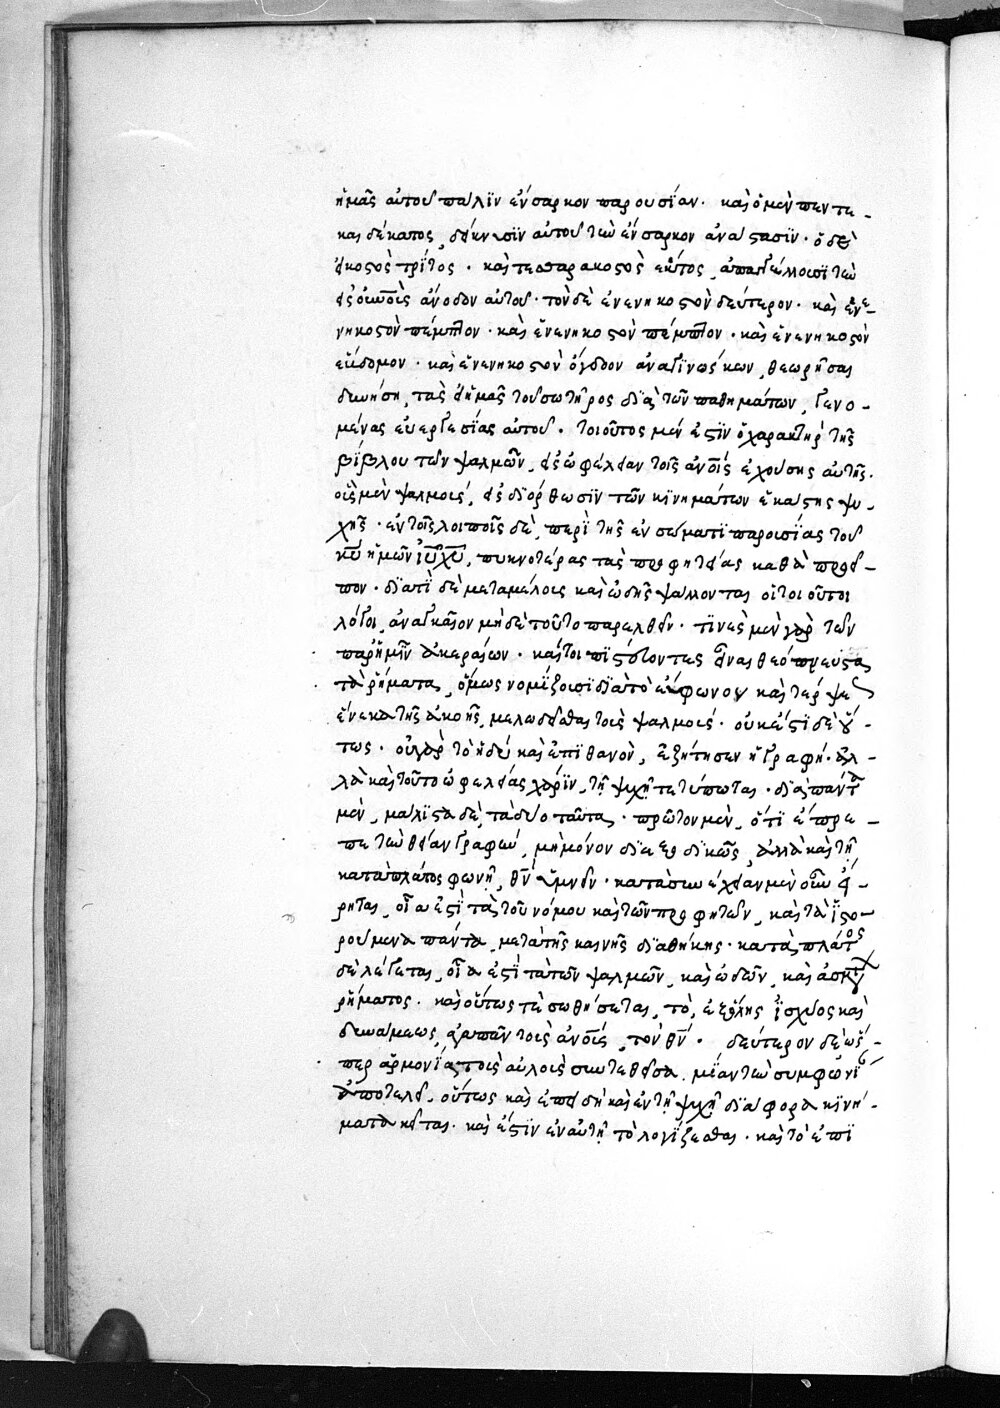 ἡμᾶς αὐτοῦ παλϊν ἐνσαρκον παρουσΐαν· καὶ ὁ μὲν πεντε-
και δέκατος, δείκνυσϊν αὐτοῦ τὴν ἐνσαρκον ἀνάστασϊν· ὁ δὲ
εἰκοστὸς τρΐτος· καὶ τεσσαρακοστὸς ἕκτος, ἀπαγγέλλουσϊ τὴν
εἰς οὐνοὺς ἄνοδον αὐτοῦ· τὸν δὲ ἐνενηκοστὸν δεύτερον· καὶ ἐνε-
νηκοστὸν πέμπτον· καὶ ἐνενηκοστὸν πέμπτον· καὶ ἐνενηκοστὸν
εὔδομον· καὶ ἐνενηκοστὸν ὄγδοον ἀναγϊνώσκων, θεωρῆσαι
δυνήση, τὰς εἰς ἡμᾶς τοῦ σωτῆρος δϊὰ τῶν παθημάτων, γενο-
μένας εὐεργεσΐας αὐτοῦ. τοιοῦτος μέν ἐστϊν ὁ χαρακτὴρ τῆς
βΐβλου τῶν ψαλμῶν, εἰς ὠφέλειαν τοῖς ἀνοις ἐχούσης αὐτῆς.
οἷς μὲν ψαλμοῖς, εἰς δϊόρθωσϊν τῶν κϊνημάτων ἑκάστης ψυ-
χῆς· ἐν τοῖς λοιποῖς δὲ, περὶ τῆς ἐν σώματϊ παροισΐας τοῦ
κυ ἡμῶν ϊυ χυ, πυκνοτέρας τὰς προφητείας καθὰ προεῖ-
πον· δϊατΐ δὲ μεταμέλοις καὶ ὠδῆς ψάλλονται οἵτοι οὗτοι
λόγοι, ἀναγκαῖον μὴ δὲ τοῦτο παρελθεῖν· τϊνὲς μὲν γὰρ τῶν
παρ ἡμῖν ἀκεραίων· καίτοι πϊστεύοντες εἶναι θεόπνευστα
τὰ ῥήματα, ὅμως νομΐζουσϊ δϊὰ τὸ εὔφωνον καὶ τέρψε
ἕνεκα τῆς ἀκοῆς, μελωδεῖσθαι τοὺς ψαλμούς· οὐκ ἔστϊ δὲ οὕ-
τως· οὐ γὰρ τὸ ἡδὺ καὶ ἐπϊθανὸν, ἐζήτησεν ἡ γραφή· ἀλ-
λὰ καὶ τοῦτο ὠφελείας χάρϊν, τῆ ψυχῆ τετύπωται· δϊὰ πάντα
μὲν, μάλϊστα δὲ, τὰ δύο ταῦτα· πρῶτον μὲν, ὅτϊ ἔπρε-
πε τὴν θείαν γραφὴν, μὴ μόνον δϊεξοδϊκῶς, ἀλλὰ καὶ τῆ
κατὰ πλάτος φωνῆ, θν ὑμνεῖν· κατὰ συνέχειαν μὲν οὖν εἴ-
ρηται, οἷα ἐστΐ τὰ τοῦ νόμου καὶ τῶν προφητῶν, καὶ τὰ ϊστο-
ρούμενα πάντα, μετὰ τῆς καινῆς δϊαθήκης· κατὰ πλάτος
δὲ λέγεται, οἷα ἐστΐ τὰ τῶν ψαλμῶν, καὶ ὠδῶν, καὶ ἀσμα
ρήματος· καὶ οὕτως τὲ σωθήσεται, τὸ, ἐξ ὅλης ϊσχύος καὶ
δυνάμεως, ἀγαπᾶν τοὺς ἀνους, τὸν θν· δεύτερον δὲ ὥσ-
περ ἁρμονΐα τοὺς αὐλοὺς συντεθεῖσα, μΐαν τὴν συμφωνΐ
ἀποτελεῖ, οὕτως καὶ ἐπειδὴ καὶ ἐν τῆ ψυχῆ δϊάφορα κϊνή-
ματα κεῖται· καὶ ἔστϊν ἐν αὐτῆ τὸ λογΐζεσθαι· καὶ τὸ ἐπϊ